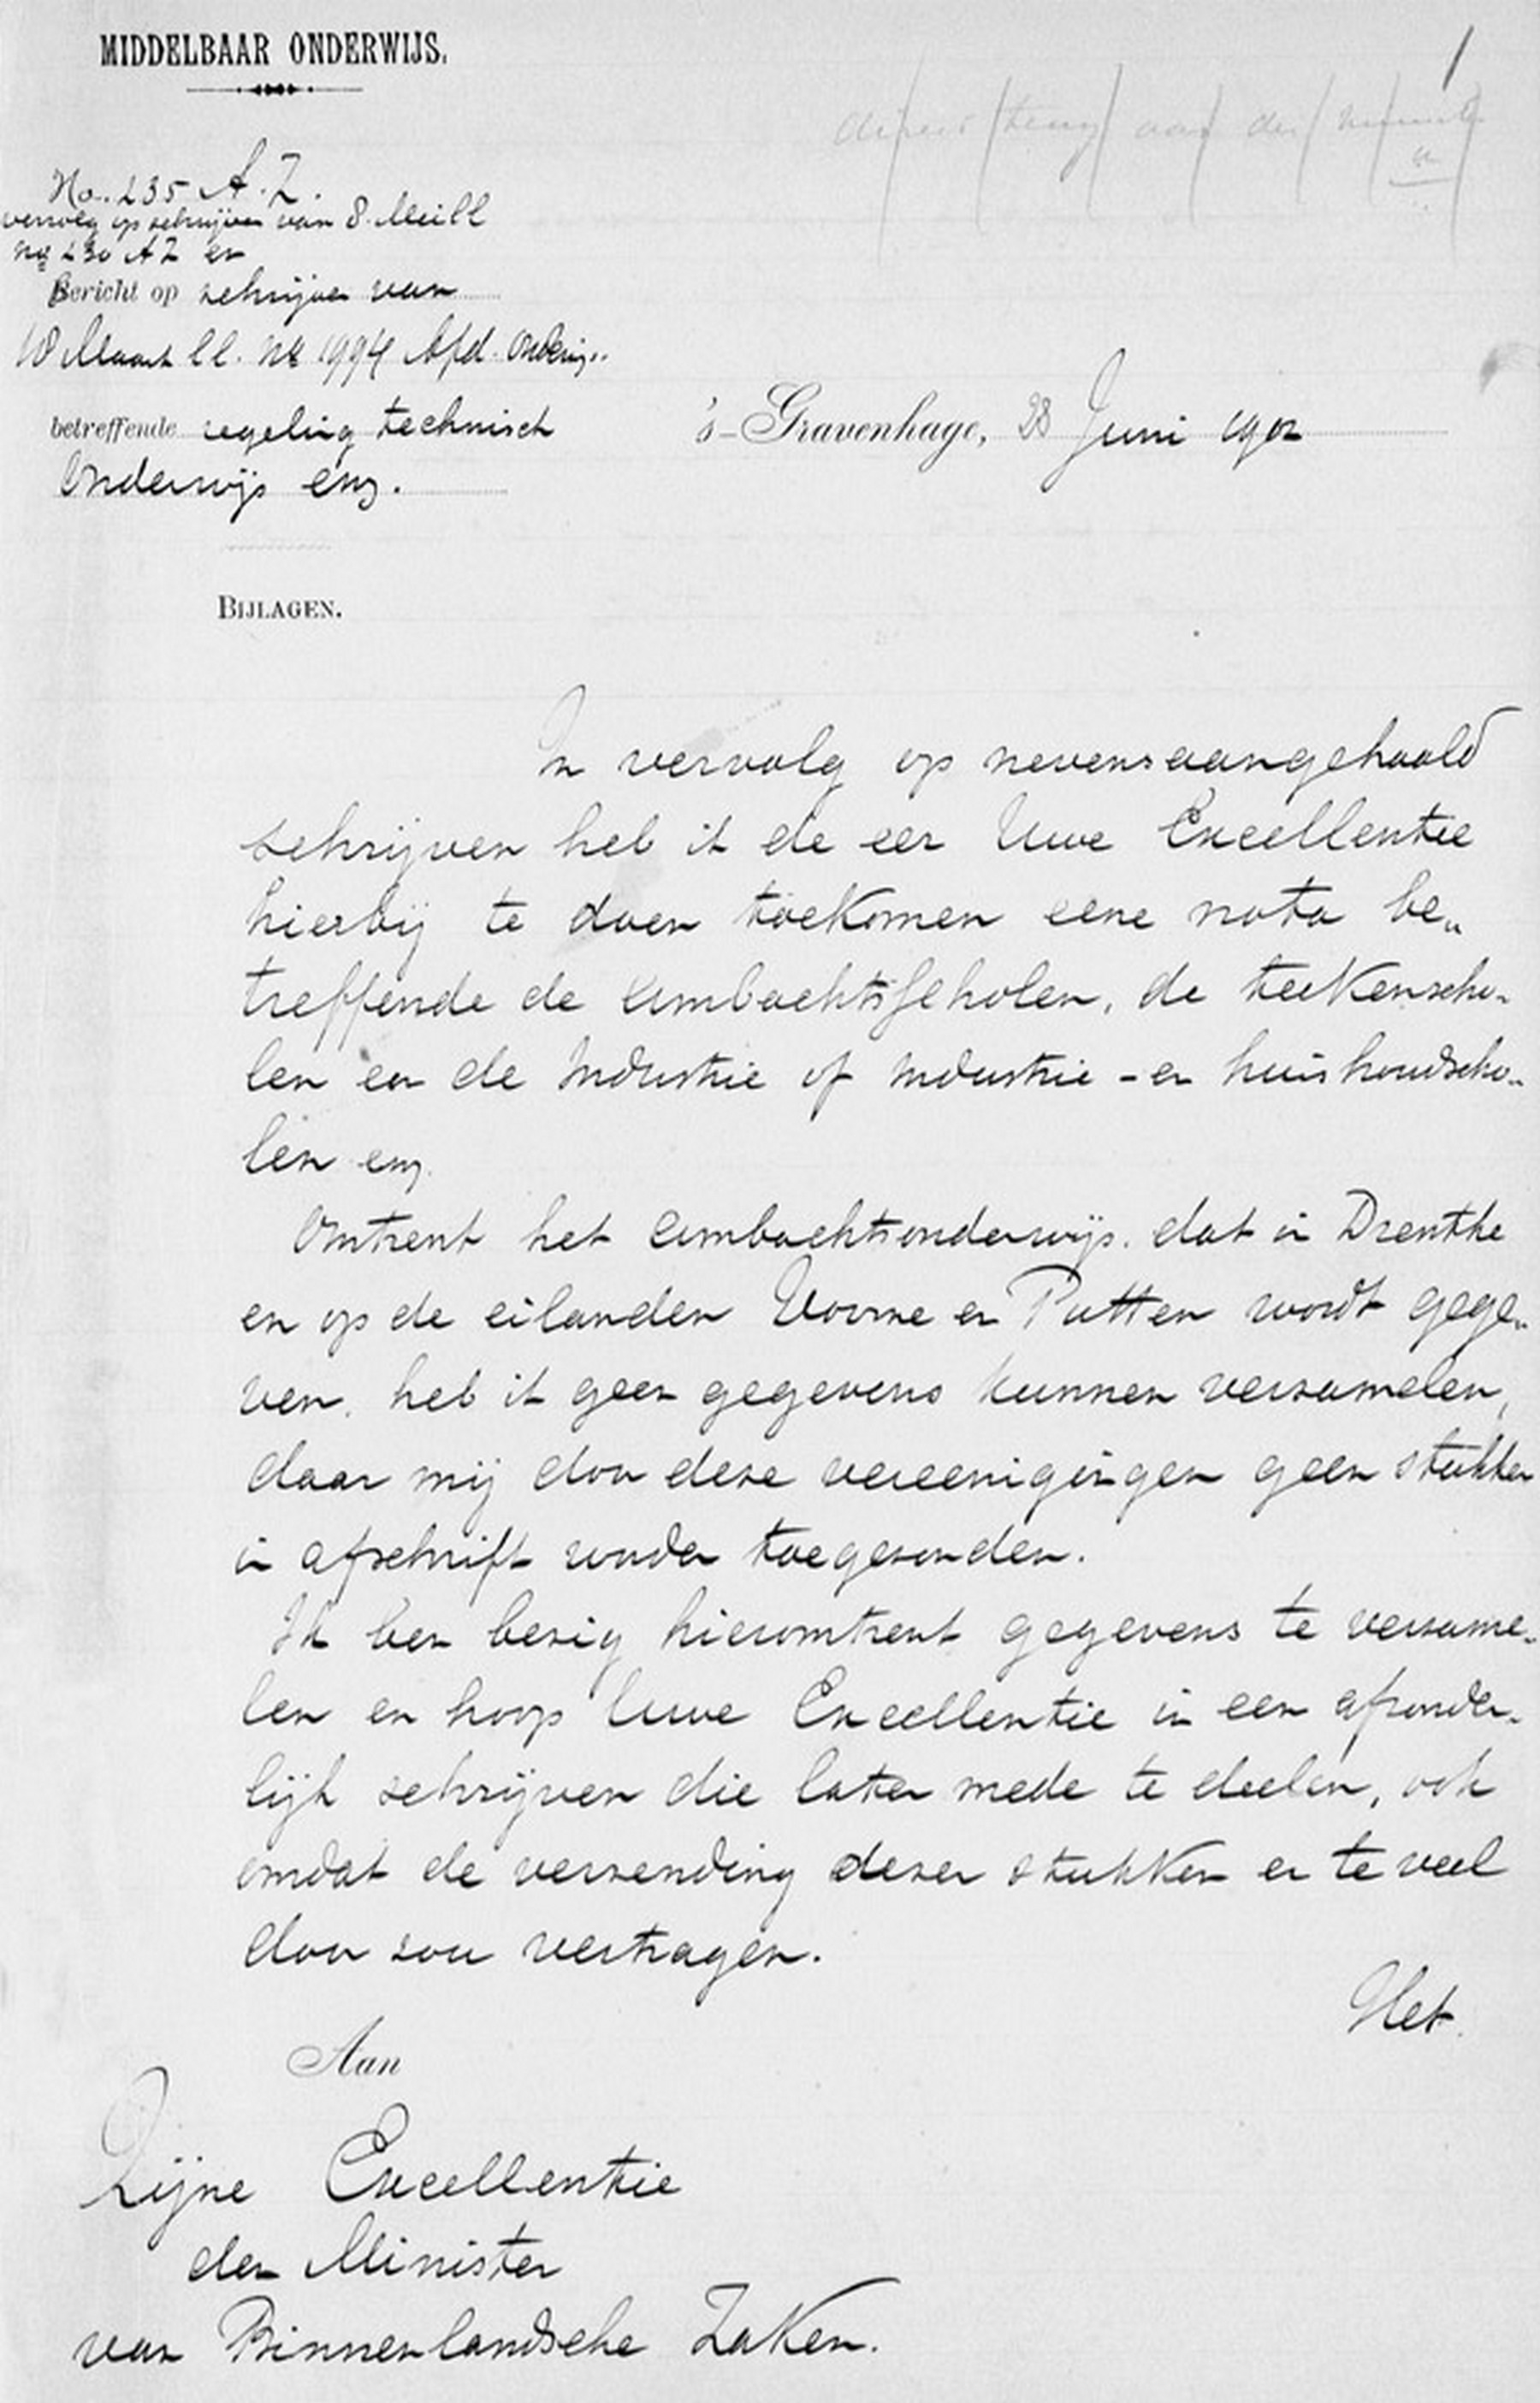 MIDDELBAAR ONDERWIJS.
1
direct terug aan den
No. 235 A.Z.
vervolg op schrijven van 8 Mei ll
No 230 AZ en
Bericht op schrijven van
10 Maart ll. No 1994 Afd. Onderwijs.
betreffende regeling technisch
Onderwijs enz.
's-Gravenhage, 28 Juni 1902
BIJLAGEN.
In vervolg op nevensaangehaald
schrijven heb ik de eer Uwe Excellentie
hierbij te doen toekomen eene nota be„
treffende de ambachtsscholen, de teekenscho„
len en de Industrie of Industrie - en huishoudscho„
len enz.
Omtrent het ambachtsonderwijs dat in Drenthe
en op de eilanden Voorne en Putten wordt gege„
ven, heb ik geen gegevens kunnen verzamelen,
daar mij door deze vereenigingen geen stukken
in afschrift worden toegezonden.
Ik ben bezig hieromtrent gegevens te verzame„
len en hoop Uwe Excellentie in een afzonder„
lijk schrijven die later mede te deelen, ook
omdat de verzending dezer stukken er te veel
door zou vertragen.
Het
Aan
Zijne Excellentie
den Minister
van Binnenlandsche Zaken.